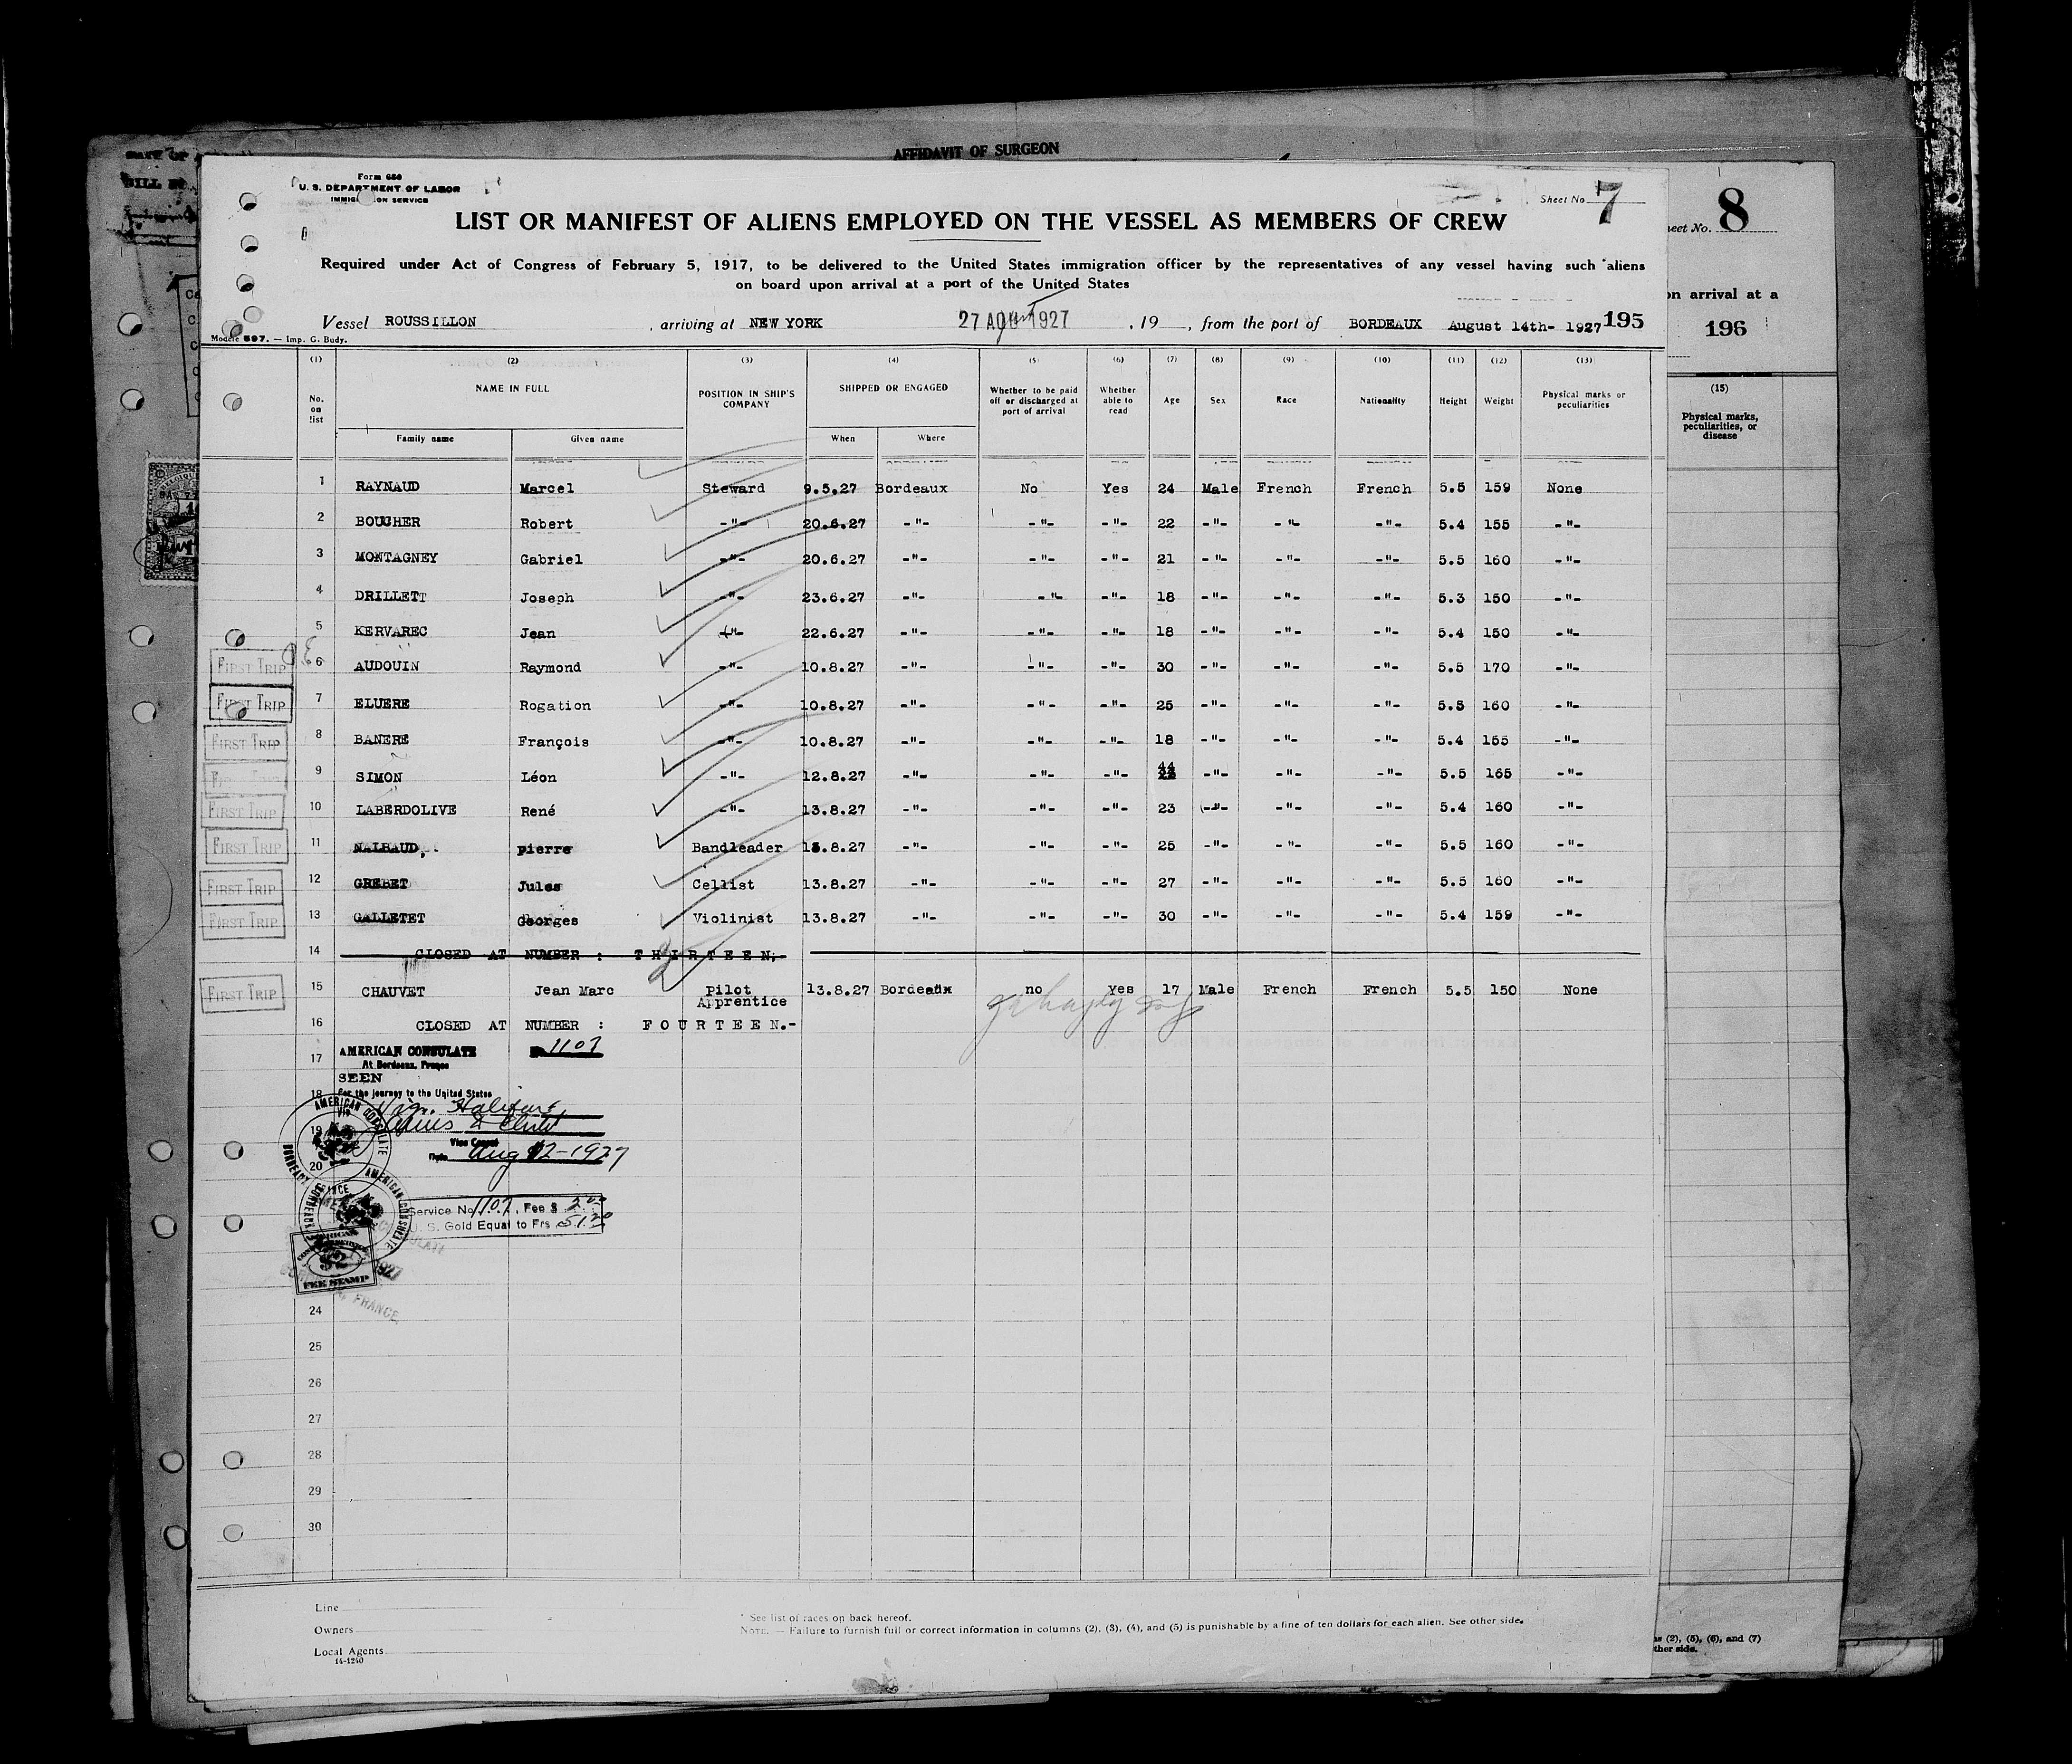 AFFIDAVIT OF SURGEON
Form 680
U. S. DEPARTMENT OF LABOR
IMMIGRATION SERVICE
Sheet No. 7
LIST OR MANIFEST OF ALIENS EMPLOYED ON THE VESSEL AS MEMBERS OF CREW
Required under Act of Congress of February 5, 1917, to be delivered to the United States immigration officer by the representatives of any vessel having such aliens
on board upon arrival at a port of the United States
Vessel ROUSSILLON , arriving at NEW YORK 27 AOU 1927 , 19 , from the port of BORDEAUX August 14th- 1927 195
Modèle 597. — Imp. G. Budy.
(1) (2) (3) (4) (5) (6) (7) (8) (9) (10) (11) (12) (13)
No. on list NAME IN FULL POSITION IN SHIP'S COMPANY SHIPPED OR ENGAGED Whether to be paid off or discharged at port of arrival Whether able to read Age Sex Race Nationality Height Weight Physical marks or peculiarities
Family name Given name When Where
1 RAYNAUD Marcel Steward 9.5.27 Bordeaux No Yes 24 Male French French 5.5 159 None
2 BOUCHER Robert -"- 20.6.27 -"- -"- -"- 22 -"- -"- -"- 5.4 155 -"-
3 MONTAGNEY Gabriel -"- 20.6.27 -"- -"- -"- 21 -"- -"- -"- 5.5 160 -"-
4 DRILLETT Joseph -"- 23.6.27 -"- -"- -"- 18 -"- -"- -"- 5.3 150 -"-
5 KERVAREC Jean -"- 22.6.27 -"- -"- -"- 18 -"- -"- -"- 5.4 150 -"-
FIRST TRIP 6 AUDOUIN Raymond -"- 10.8.27 -"- -"- -"- 30 -"- -"- -"- 5.5 170 -"-
FIRST TRIP 7 ELUERE Rogation -"- 10.8.27 -"- -"- -"- 25 -"- -"- -"- 5.5 160 -"-
FIRST TRIP 8 BANERE François -"- 10.8.27 -"- -"- -"- 18 -"- -"- -"- 5.4 155 -"-
FIRST TRIP 9 SIMON Léon -"- 12.8.27 -"- -"- -"- 44 -"- -"- -"- 5.5 165 -"-
FIRST TRIP 10 LABERDOLIVE René -"- 13.8.27 -"- -"- -"- 23 -"- -"- -"- 5.4 160 -"-
FIRST TRIP 11 NALBAUD, pierre Bandleader 13.8.27 -"- -"- -"- 25 -"- -"- -"- 5.5 160 -"-
FIRST TRIP 12 GREBET Jules Cellist 13.8.27 -"- -"- -"- 27 -"- -"- -"- 5.5 160 -"-
FIRST TRIP 13 GALLETET Georges Violinist 13.8.27 -"- -"- -"- 30 -"- -"- -"- 5.4 159 -"-
14 CLOSED AT NUMBER : T H I R T E E N.
FIRST TRIP 15 CHAUVET Jean Marc Pilot Apprentice 13.8.27 Bordeaux no Yes 17 Male French French 5.5 150 None
16 CLOSED AT NUMBER : F O U R T E E N.-
17 AMERICAN CONSULATE 1107
At Bordeaux, France
SEEN
18 For the journey to the United States
Via Halifax
19
Vice Consul
20 Date Aug 12-1927
AMERICAN CONSULATE BORDEAUX FRANCE
AMERICAN CONSULATE BORDEAUX
Service No 1107, Fee $ 2.00
U. S. Gold Equal to Frs 51.20
AMERICAN CONSULAR SERVICE $2 FEE STAMP
24
25
26
27
28
29
30
Line
Owners
Local Agents
14-1240
* See list of races on back hereof.
NOTE. — Failure to furnish full or correct information in columns (2), (3), (4), and (5) is punishable by a fine of ten dollars for each alien. See other side.
Sheet No. 8
on arrival at a
196
(15)
Physical marks, peculiarities, or disease
ns (2), (5), (6), and (7)
ther side.